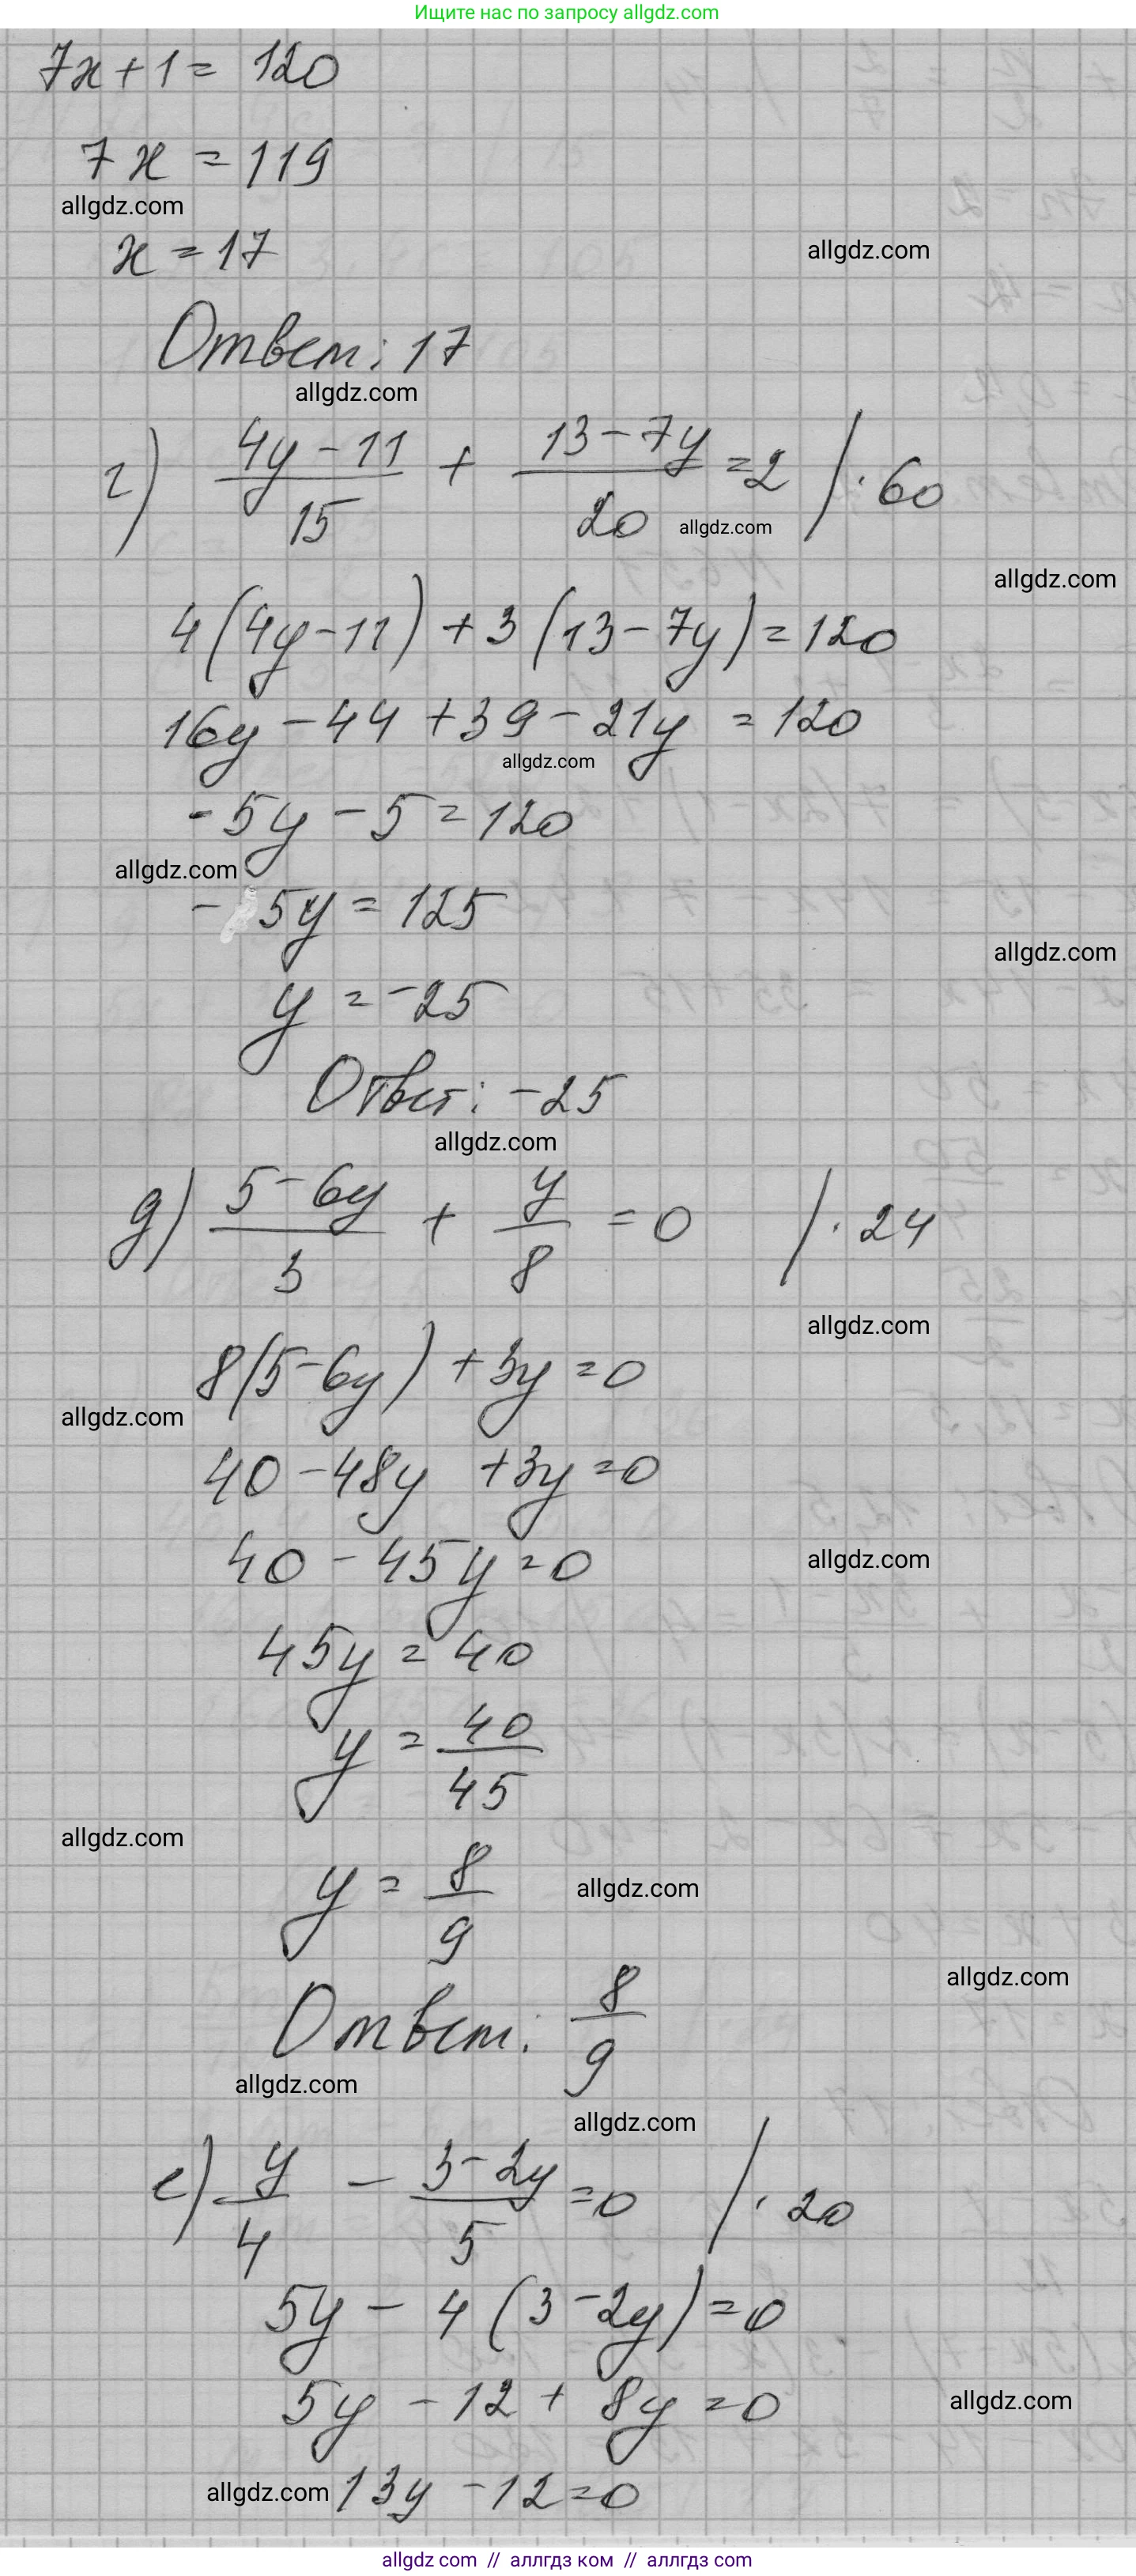 Ищите нас по запросу allgdz.com
7x + 1 = 120
7x = 119
allgdz.com
x = 17
allgdz.com
Ответ: 17
allgdz.com
г) (4y - 11)/15 + (13 - 7y)/20 = 2 / · 60
allgdz.com
allgdz.com
4(4y - 11) + 3(13 - 7y) = 120
16y - 44 + 39 - 21y = 120
allgdz.com
- 5y - 5 = 120
allgdz.com
- 5y = 125
allgdz.com
y = -25
Ответ: -25
allgdz.com
д) (5 - 6y)/3 + y/8 = 0 / · 24
allgdz.com
8(5 - 6y) + 3y = 0
allgdz.com
40 - 48y + 3y = 0
40 - 45y = 0
allgdz.com
45y = 40
y = 40/45
allgdz.com
y = 8/9
allgdz.com
allgdz.com
Ответ: 8/9
allgdz.com
allgdz.com
е) y/4 - (3 - 2y)/5 = 0 / · 20
5y - 4(3 - 2y) = 0
5y - 12 + 8y = 0
allgdz.com
allgdz.com
13y - 12 = 0
allgdz com // аллгдз ком // аллгдз com